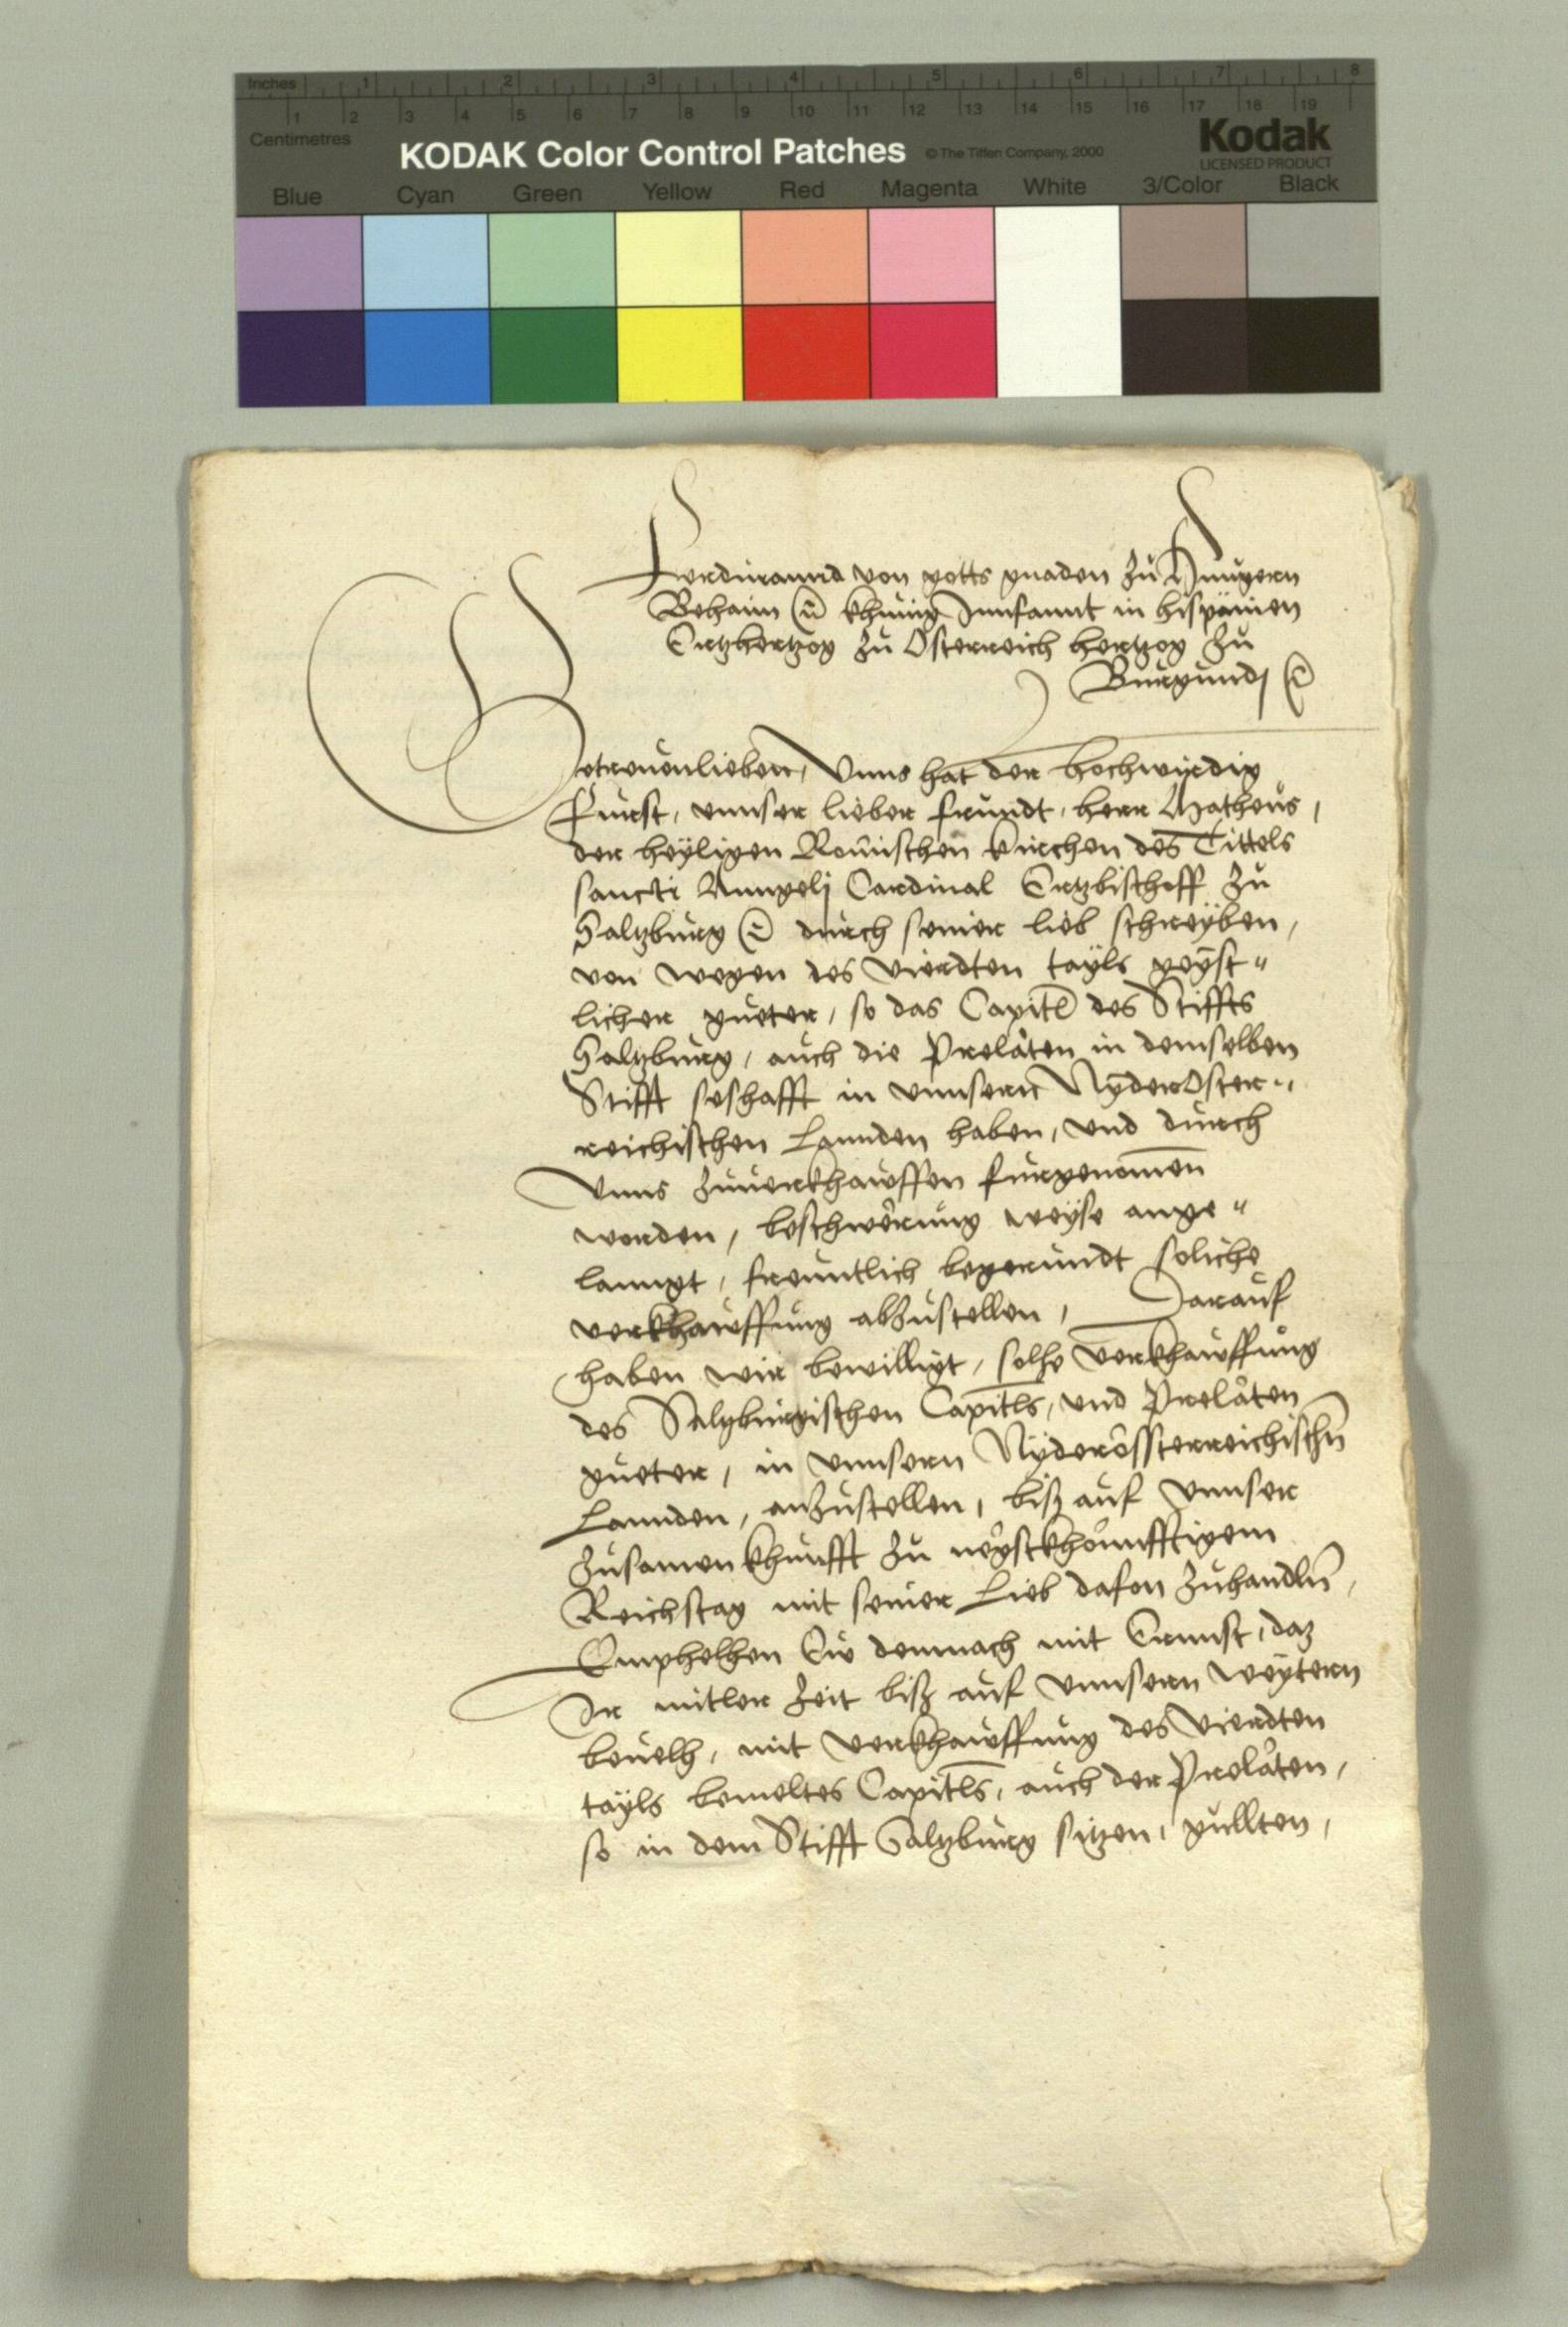 Inches 1 2 3 4 5 6 7 8
1 2 3 4 5 6 7 8 9 10 11 12 13 14 15 16 17 18 19
Centimetres
KODAK Color Control Patches © The Tiffen Company, 2000
Kodak
LICENSED PRODUCT
Blue Cyan Green Yellow Red Magenta White 3/Color Black
Ferdinannd von gotts gnaden zu Hungern
Behaim khunig Innfannt in hispänien
Ertzhertzog zu Österreich hertzog zu
Burgundj
Getreuenlieben, Unns hat der hochwirdig
Furst, unnser lieber frundt, herr Matheus,
der heyligen Römischen kirchen des Tittels
sancti Anngelj Cardinal Ertzbischoff zu
Saltzburg durch seiner lieb schreyben,
von wegen des vierdten tayls geyst"
licher gueter, so das Capitl des Stiffts
Saltzburg, auch die Prelaten in demselben
Stifft seshafft in unnsern Nyderoster"
reichischen Lannden haben, und durch
unns zuuerkhauffen furgenomen
worden, beschwerung weyse ange"
lanngt, freuntlich begerundt soliche
verkhauffung abzustellen, Darauf
haben wir bewilligt, solhe verkhauffung
des Saltzburgischen Capitls, und Prelaten
gueter, in unnsern Nyderössterreichischn
Lannden, anzustellen, bisz auf unnser
zusamenkhunfft zu negstkhonnfftigem
Reichstag mit seiner Lieb dafon zuhandln,
Emphelhen Eu demnach mit Ernnst, daz
Ir mitler Zeit bisz auf unnsern weytern
beuelh, mit verkhauffung des vierdten
tayls bemeltes Capitls, auch der Prelaten,
so in dem Stifft Saltzburg sitzen, gullten,